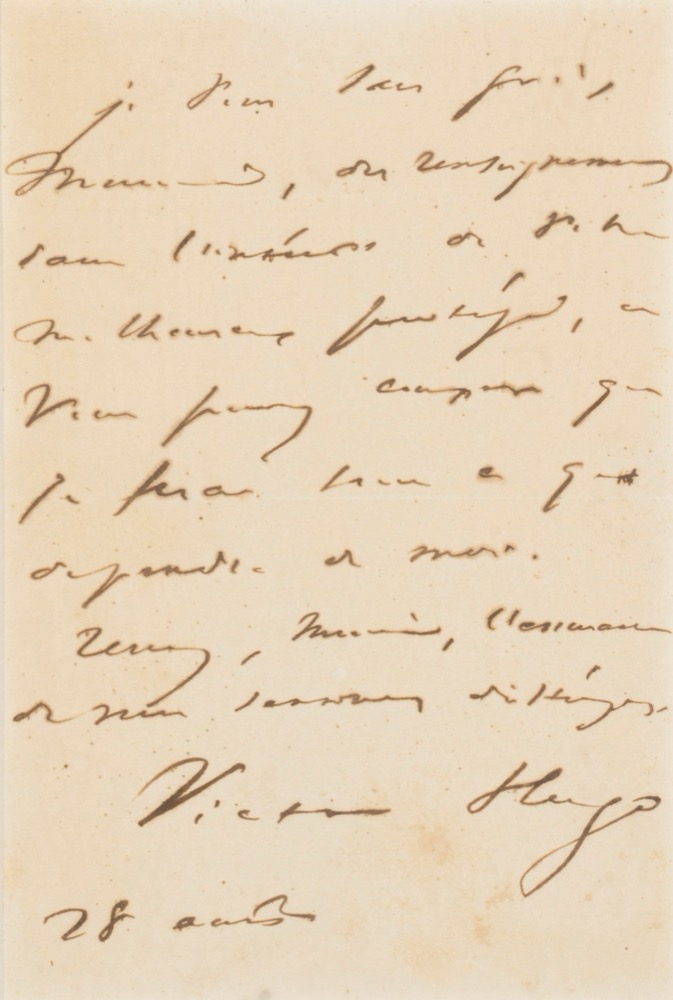 je vous sais gré,
Monsieur, des renseignements
dans l'intérêt de votre
malheureux protégé, et
vous pouvez compter que
je ferai tout ce qui
dépendra de moi.
Recevez, Monsieur, l'assurance
de mes sentiments distingués
Victor Hugo
28 août